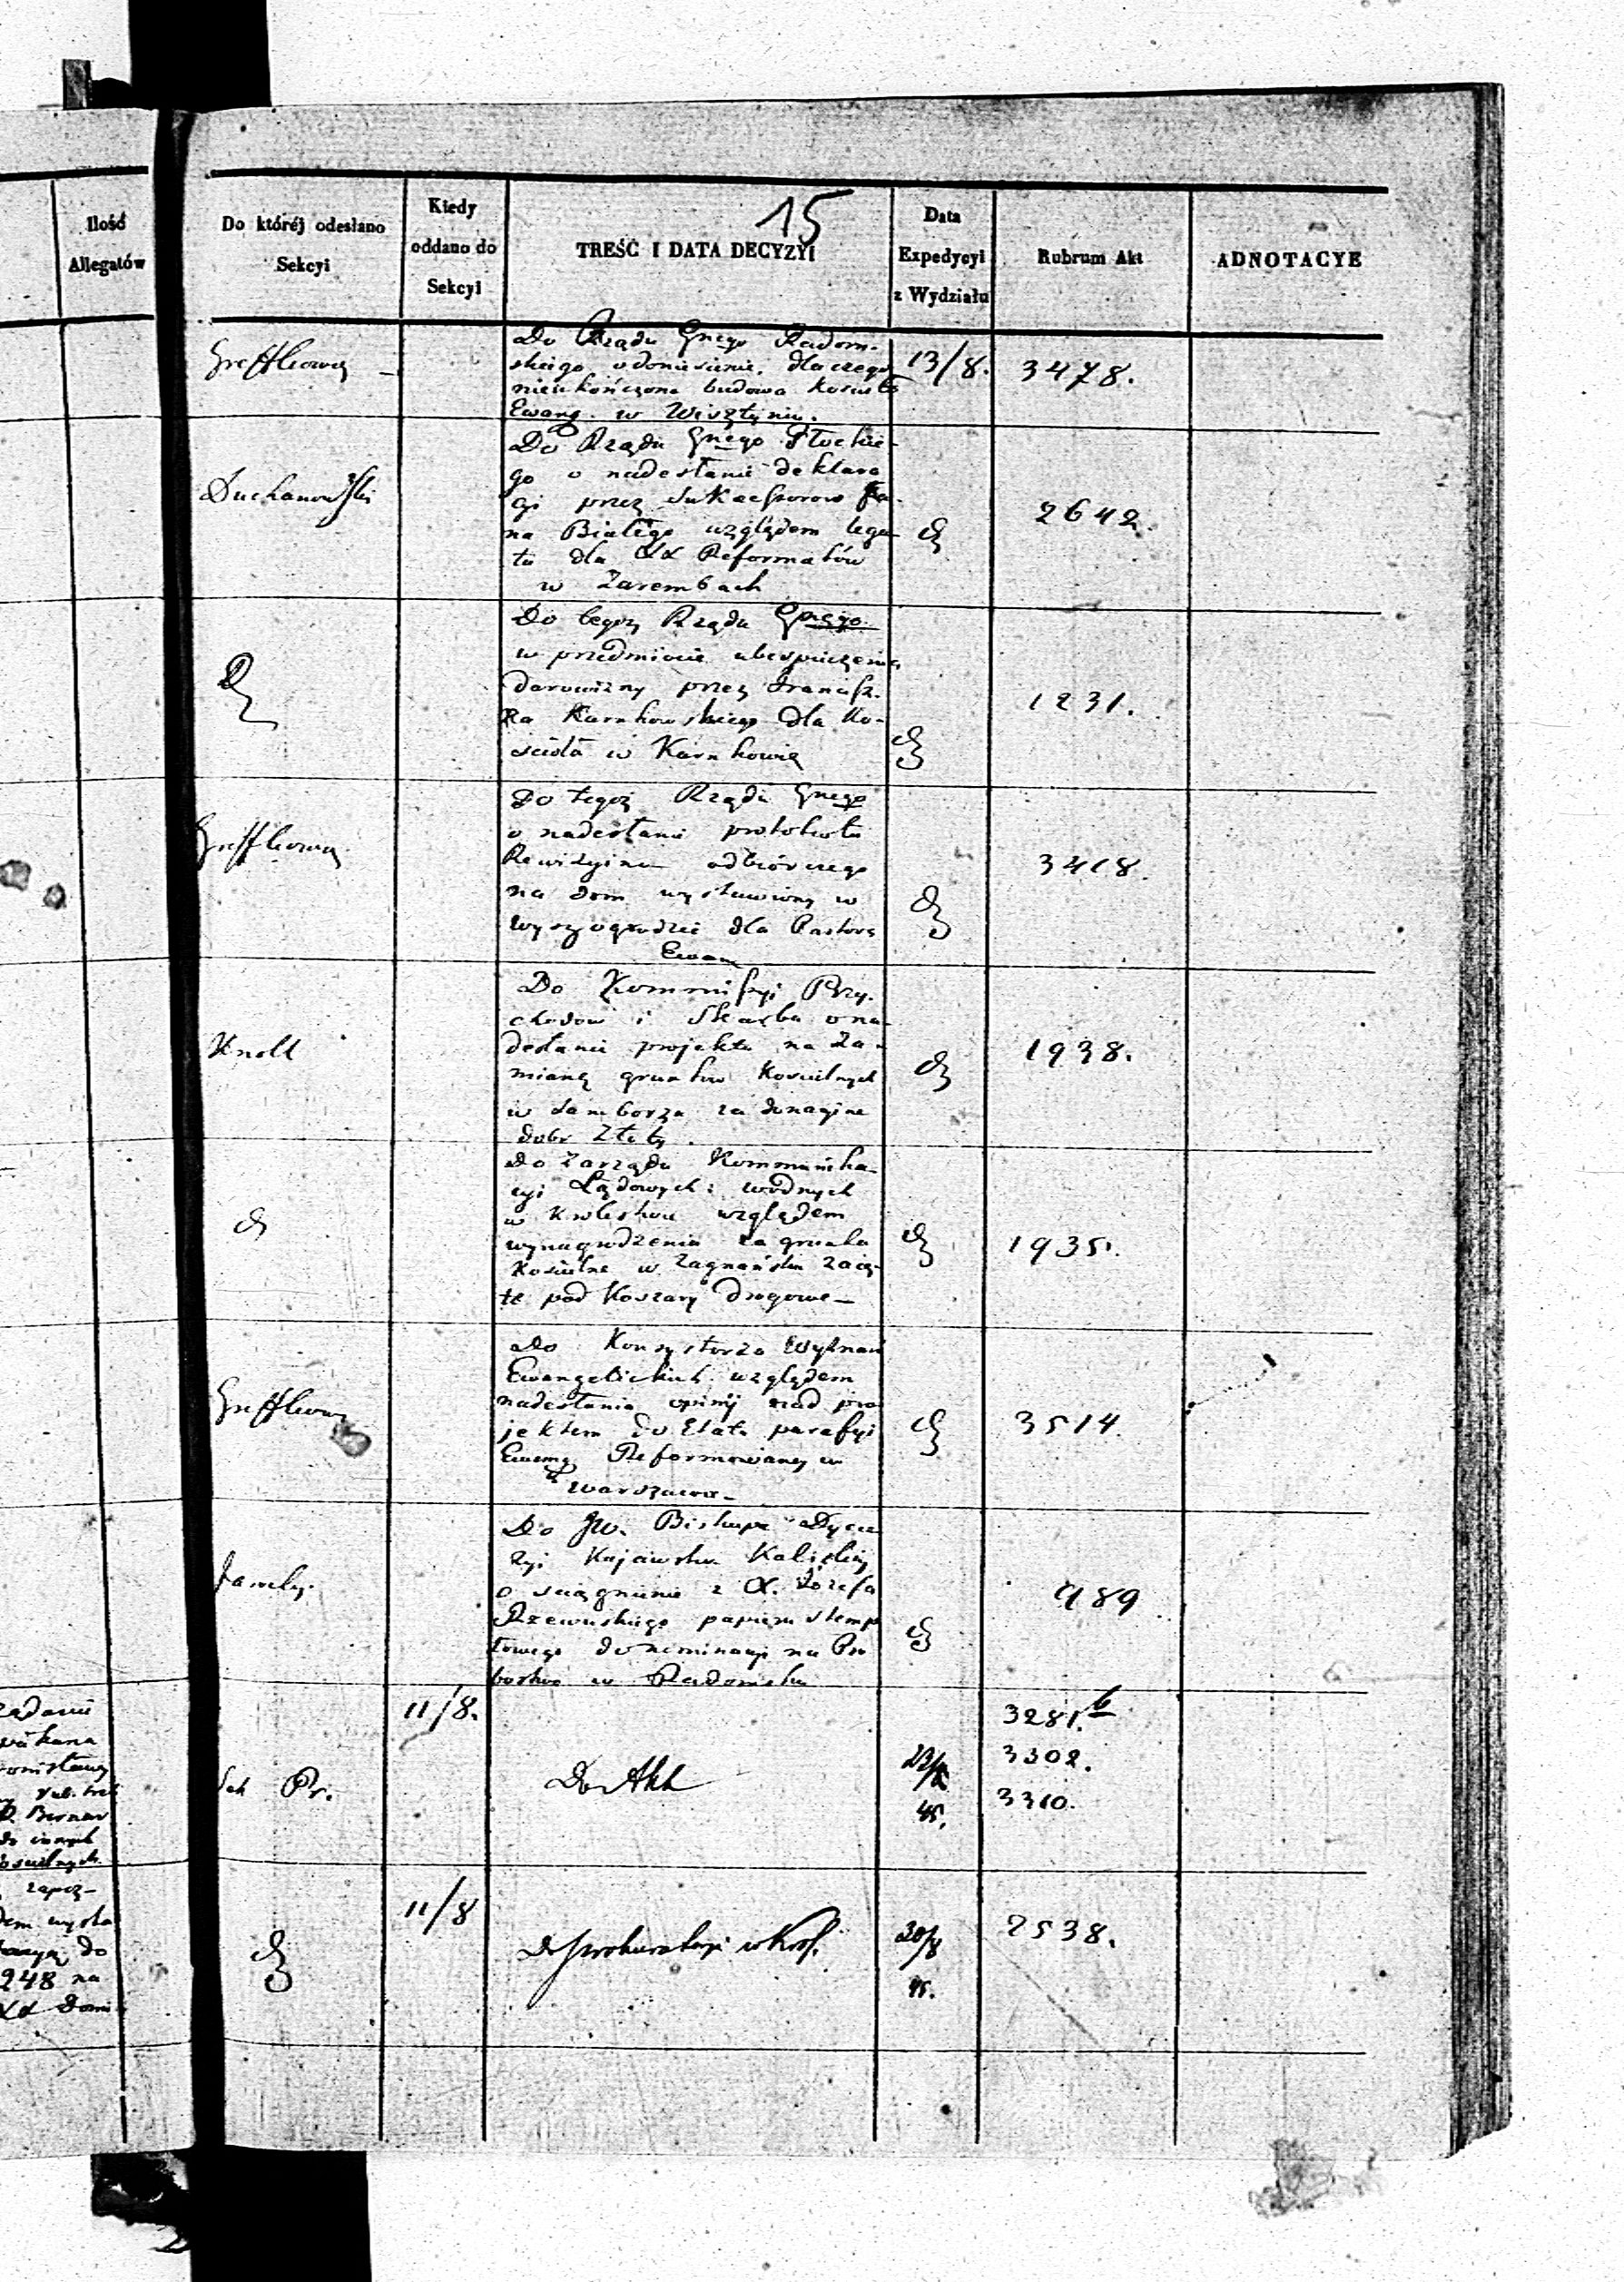 15
Ilość
Allegatów
Do któréj odesłano
Sekcyi
Kiedy
oddano do
Sekcyi
TREŚĆ I DATA DECYZYI
Data
Expedycyi
z Wydziału
Rubrum Akt
ADNOTACYE
Do Rządu Gnego Radom-
skiego o doniesienie, dlaczego
nieukończona budowa kościoła
Ewang. w Wisztyniu.
13/8.
3478.
Duchanowski
Do Rządu Gnego Płockie-
go o nadesłanie deklara
cyi przez Sukcessorow
na Białego względem lega-
tu dla XX Reformatów
w Zarembach
2642.
Do tegoż Rządu Gnego
w przedmiocie ubezpieczenia
darowizny przez Francisz.
ka Karnkowskiego dla Ko-
ścioła w Karnkowie
1231.
Do tegoż Rządu Gnego
o nadesłanie protokółu
Rewizyino odbiórczego
na dom wystawiony w
Wyszogrodzie dla Pastora
Ewan
3418.
Knoll
Do Kommissyi Przy.
chodow i Skarbu o na-
desłanie projektu na Za-
mianę gruntów Kościelnych
w Samborzu za
dobr Złoty.
1938.
Do Zarządu Kommunika-
cyi Lądowych i wodnych
w Królestwie względem
wynagrodzenia za grunta
Kościelne w Zagnańsku zaję-
te pod Koszary drogowe-
1935.
Do Konsystorza Wyznań
Ewangelickich względem
nadesłania opinij nad pro
jektem do Etatu parafyi
Ewang Reformowanej w
Warszawie-
3514.
Do JW. Biskupa Dyece
zyi Kujawsko Kaliskiej
o ściągnienie z X. Józefa
Rzewuskiego papieru stemp
lowego do nominacyi na Pro
bostwo w Radomsku
989
11/8.
Pr.
Do Akt
45.
3281.b
3302.
3310.
11/8
Do Prokuratoryi w Król.
20/8
45.
2538.
Bernar
do innych
ościelnych.
do
248 na
XX Domi